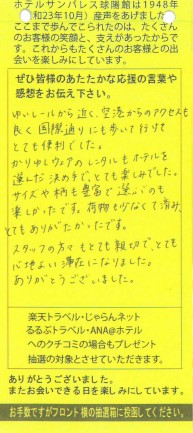 ホテルサンパレス球陽館は1948年
(昭和23年10月) 産声をあげました。
ここまで歩んでこられたのは、たくさん
のお客様の笑顔と、支えがあったからで
す。これからもたくさんのお客様との出
会いを楽しみにしています。
ぜひ皆様のあたたかな応援の言葉や
感想をお伝え下さい。
ゆいレールから近く、空港からのアクセスも
良く国際通りにも歩いて行けて
とても便利でした。
かりゆしウェアのレンタルもホテルを
選んだ決め手で、とても楽しみでした。
サイズや柄も豊富で選ぶのも
楽しかったです。荷物も少なくて済み、
とてもありがたかったです。
スタッフの方々もとても親切で、とても
心地よい滞在になりました。
ありがとうございました。
楽天トラベル・じゃらんネット
るるぶトラベル・ANA@ホテル
へのクチコミの場合もプレゼント
抽選の対象とさせていただきます。
ありがとうございました。
またお会いできる日を楽しみにしています。
お手数ですがフロント横の抽選箱に投函してください。